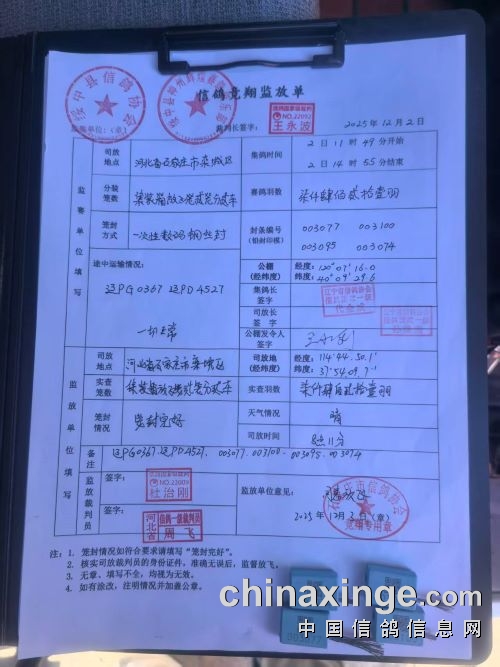 信鸽竞翔监放单
绥中县信鸽协会
裁判长签字：
信鸽国家级裁判
NO.22092
王永波
2025年12月2日
监赛单位填写
司放地点
河北省石家庄市栾城区
集鸽时间
2日11时49分开始
2日14时55分结束
分装笼数
赛鸽羽数
柒仟肆佰贰拾壹羽
笼封方式
封条编号（铅封印模）
003077 003100
003095 003074
途中运输情况：
辽PG0367 辽PD4527
一切正常
公棚（经纬度）
经度：120°07′16.0
纬度：40°09′29.6
集鸽长签字
司放长签字
公棚发令人签字
监放单位填写
司放地点
司放地（经纬度）
经度：114°44.30.1′
纬度：37°54.09.7″
实查笼数
实查羽数
笼封情况
笼封完好
天气情况
晴
司放时间
8点11分
备注
辽PG0367.辽PD4527. 003077.003100.003095.003074
监放裁判员
签字：
NO.22009
杜治刚
签字：
河北省
信鸽一级裁判员
周飞
监放单位意见：
同意放飞
石家庄市信鸽协会
竞翔专用章
2025年12月3日（章）
注：1. 笼封情况如符合要求请填写“笼封完好”。
2. 核实司放裁判员的身份证件，准确无误后，监督放飞。
3. 无章、填写不全，均视为无效。
4. 如有涂改，注明情况并加盖公章。
chinaxinge.com
中国信鸽信息网